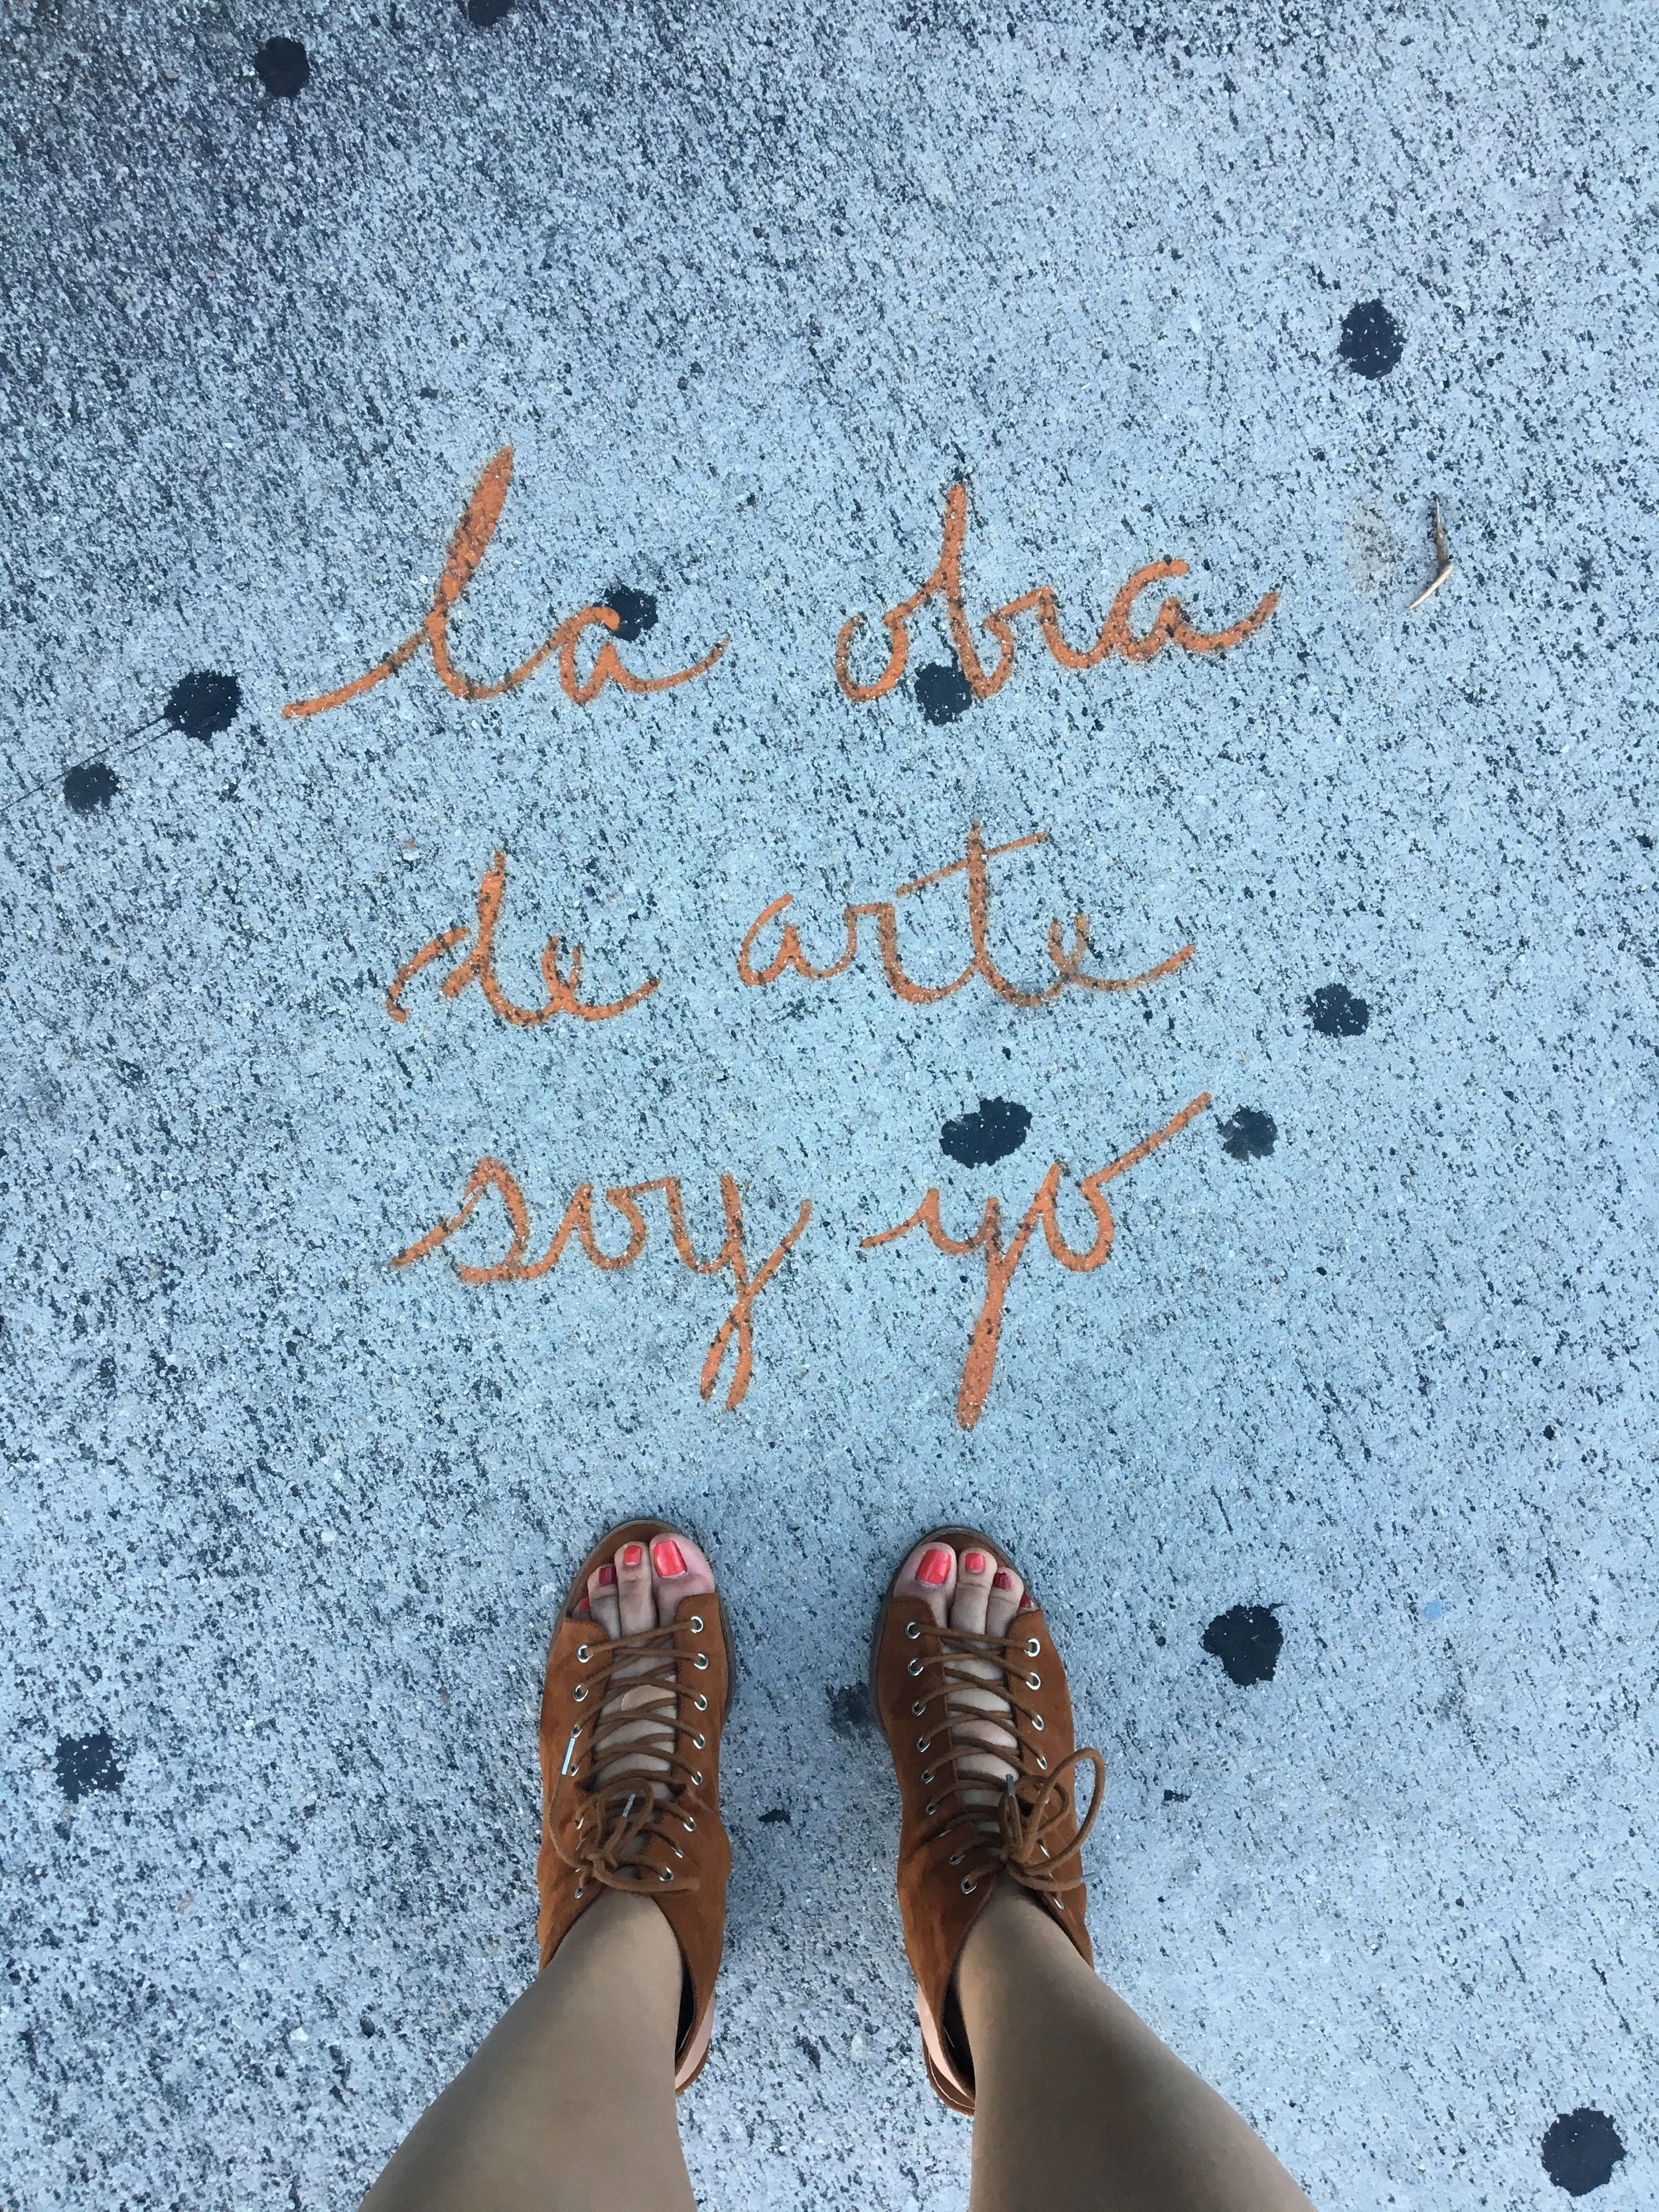 la obra
de arte
soy yo